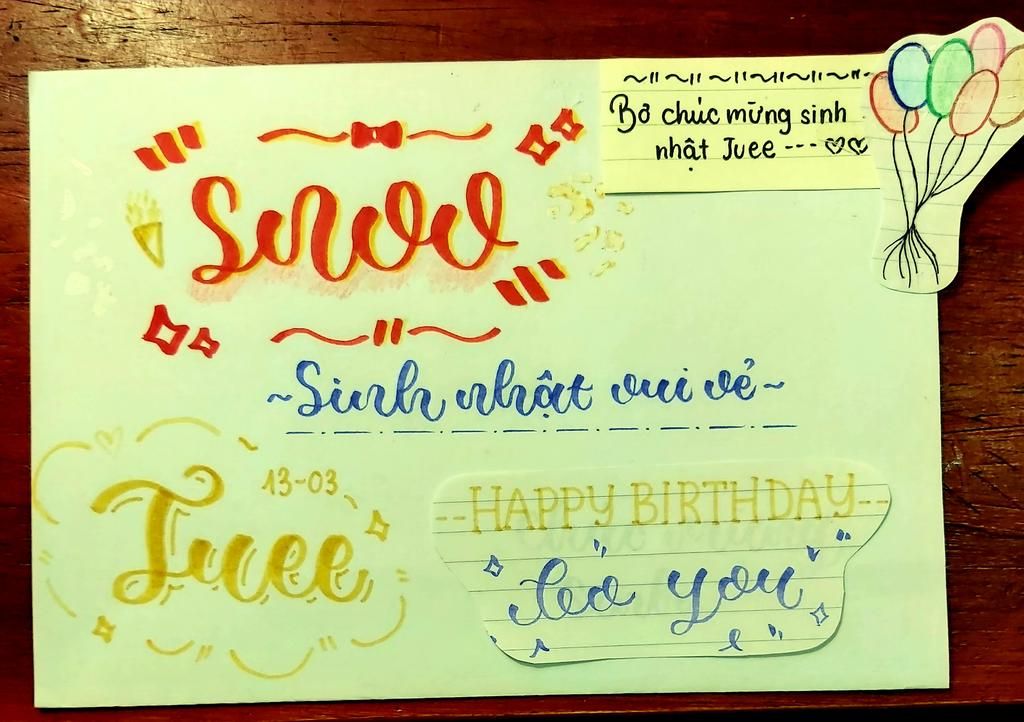 Bơ chúc mừng sinh
nhật Juee --- ♡♡
Snvv
~Sinh nhật vui vẻ~
13-03
Juee
--HAPPY BIRTHDAY--
to you